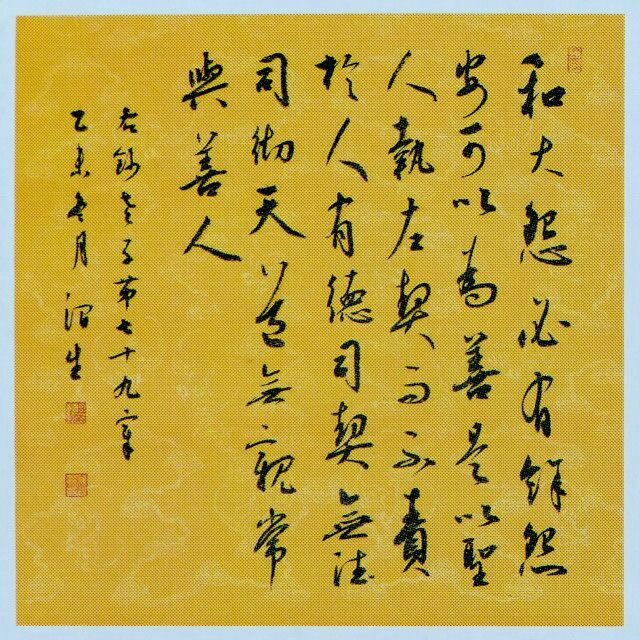 和大怨必有餘怨
安可以為善是以聖
人執左契而不責
於人有德司契無德
司彻天道無親常
與善人
右錄老子第七十九章
乙未冬月 生